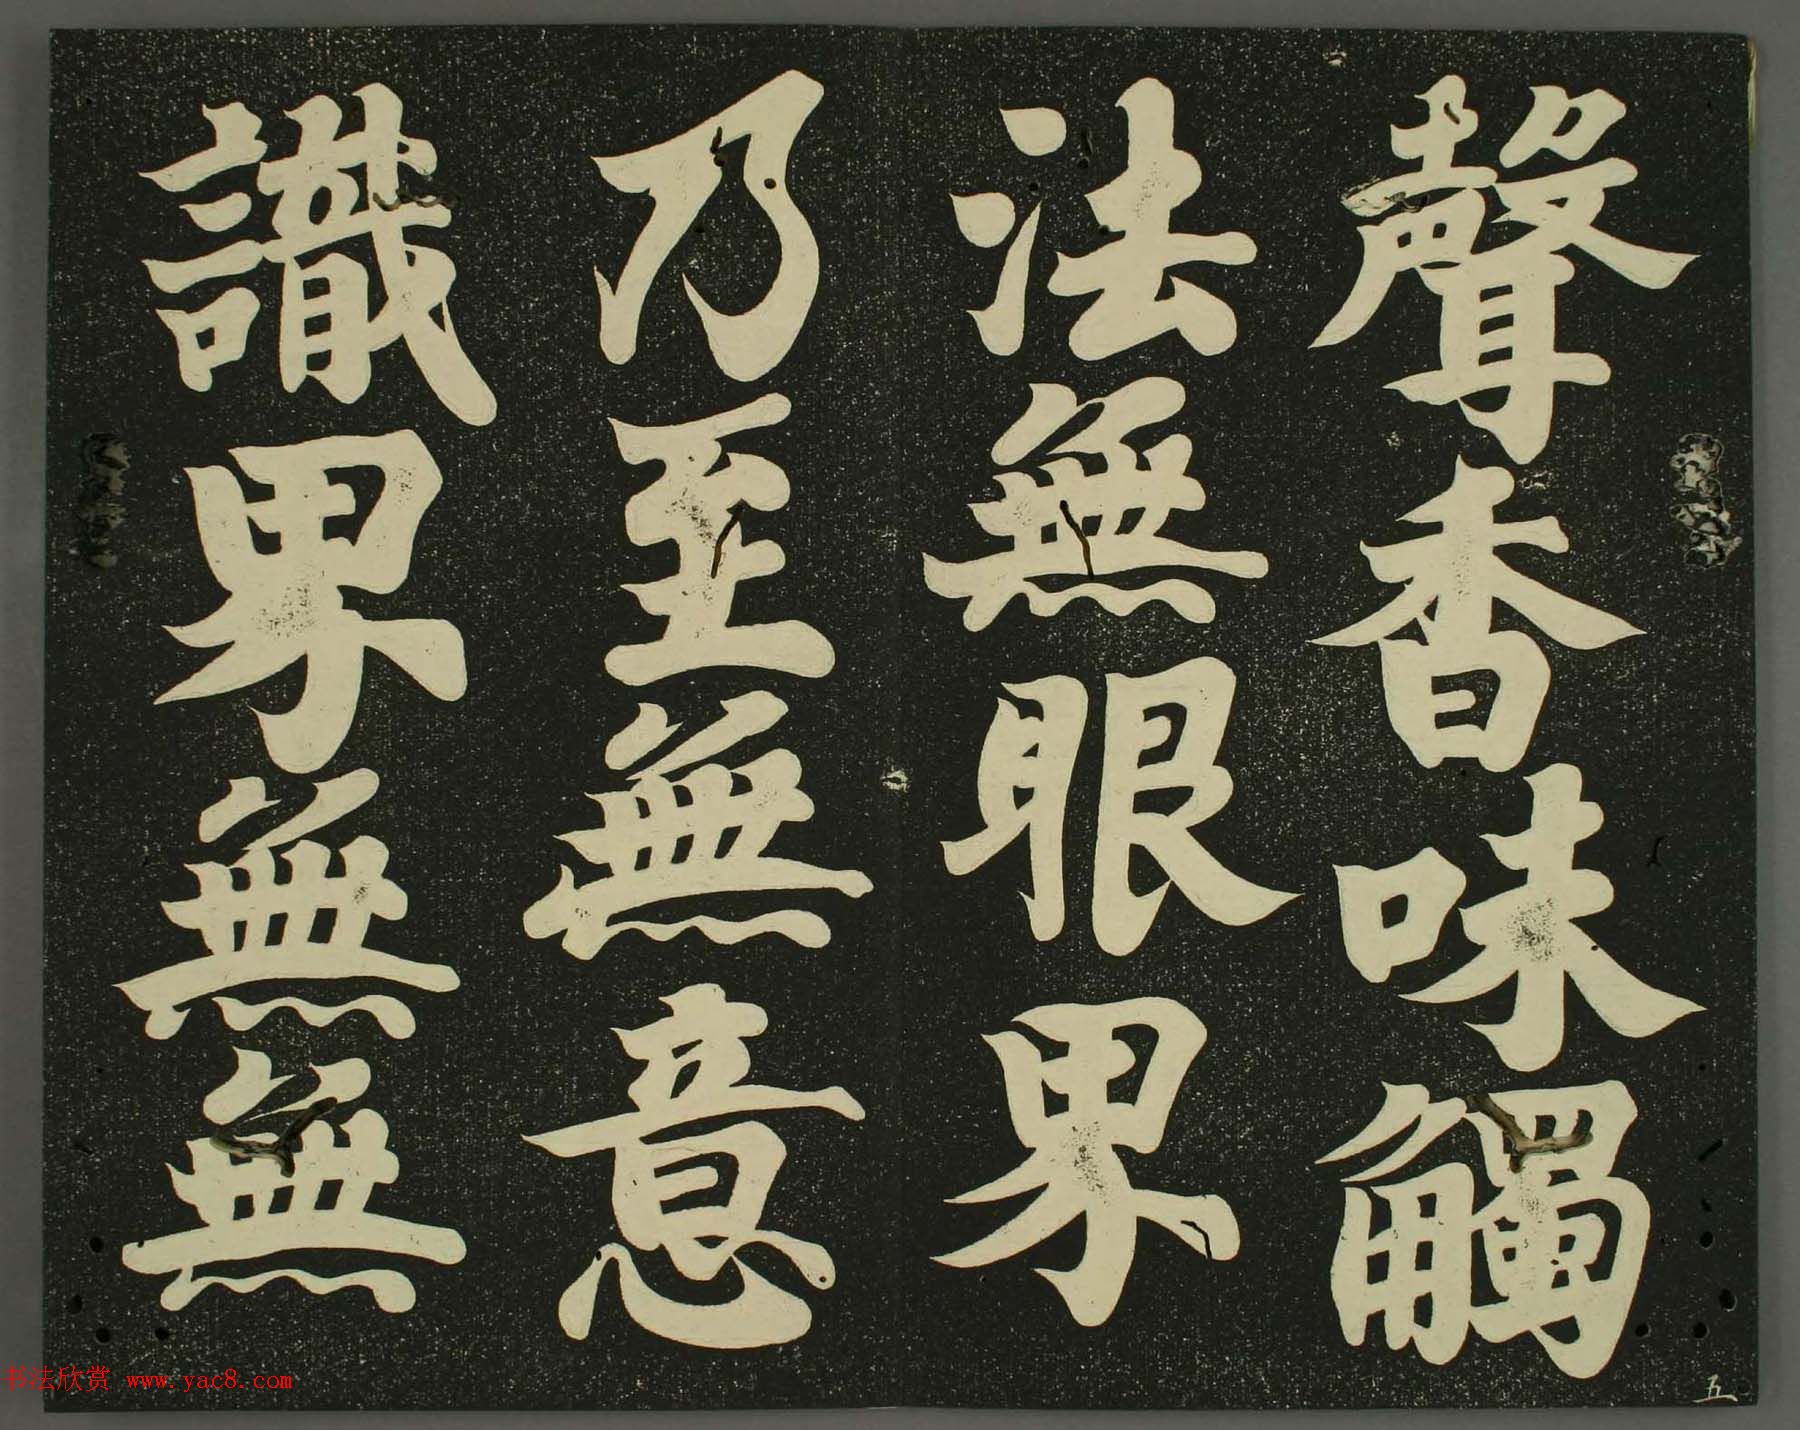 聲香味觸
法無眼界
乃至無意
識界無無
五
书法欣赏 www.yac8.com